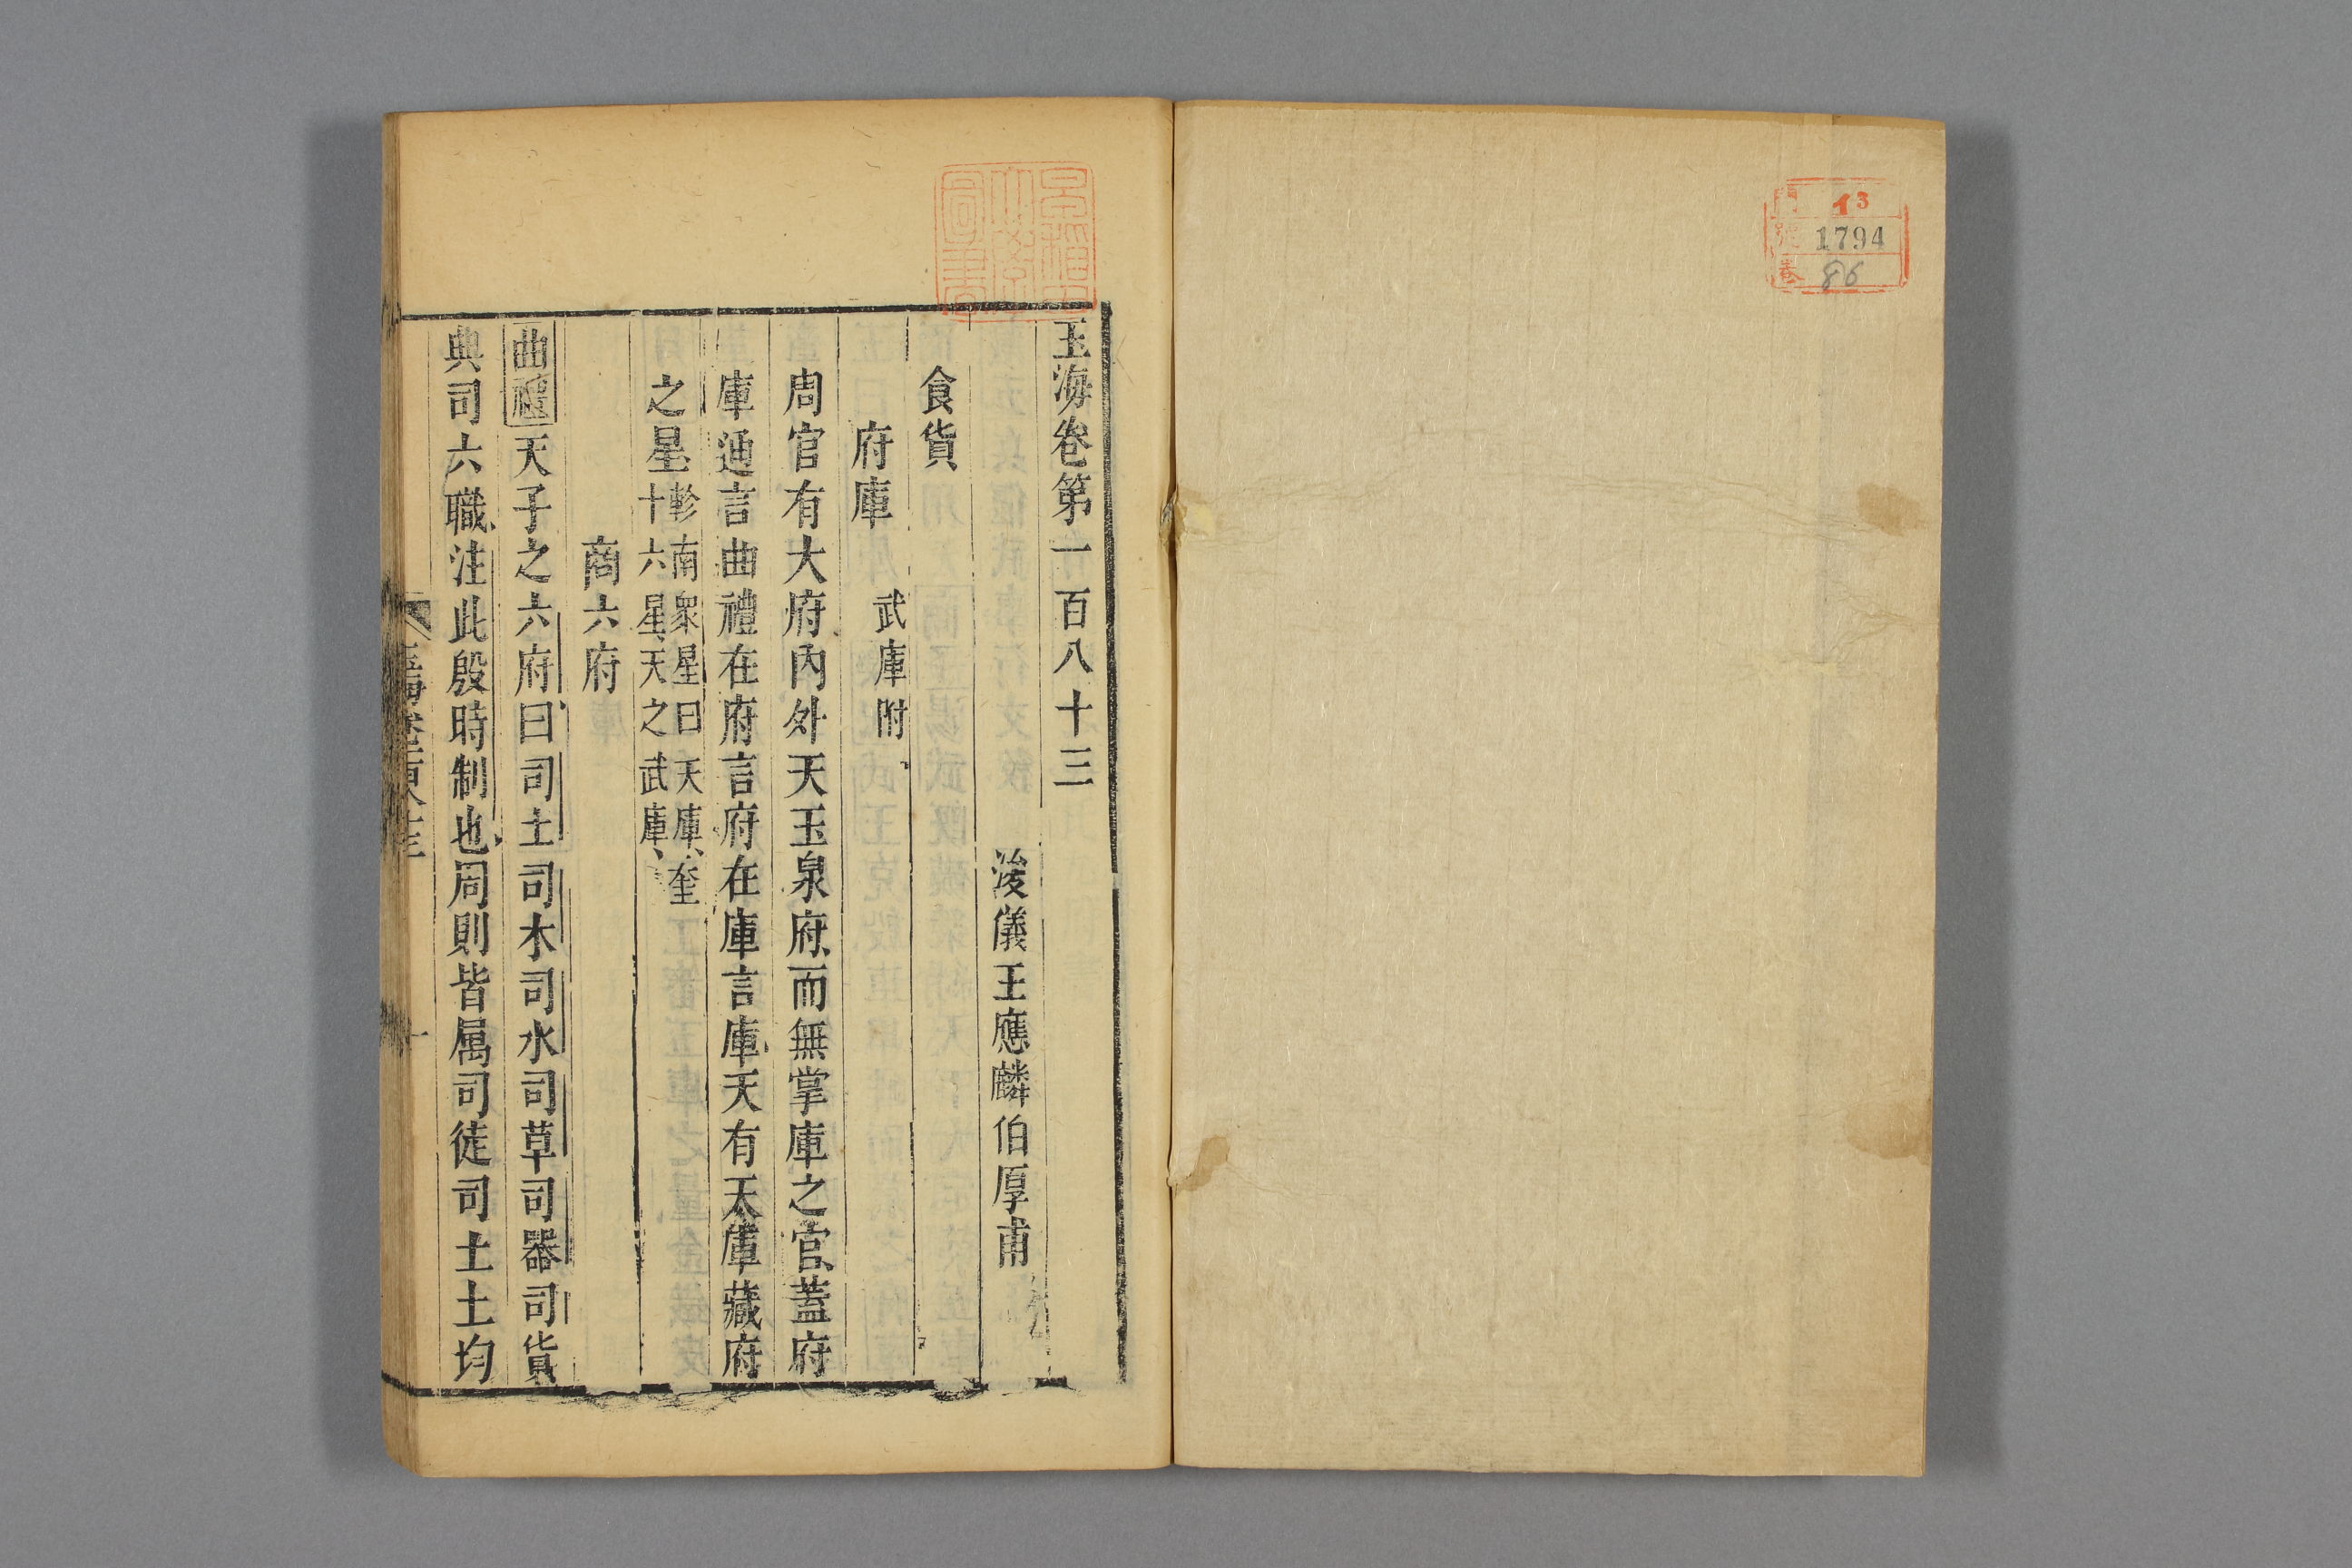 門 13
號 1794
卷 86
玉海卷第一百八十三
浚儀王應麟伯厚甫
食貨
府庫 武庫附
周官有大府內外天玉泉府而無掌庫之官蓋府
庫通言曲禮在府言府在庫言庫天有天庫藏府
之星軫南衆星曰天庫奎
十六星天之武庫
商六府
曲禮天子之六府曰司土司木司水司草司器司貨
典司六職注此殷時制也周則皆属司徒司土土均